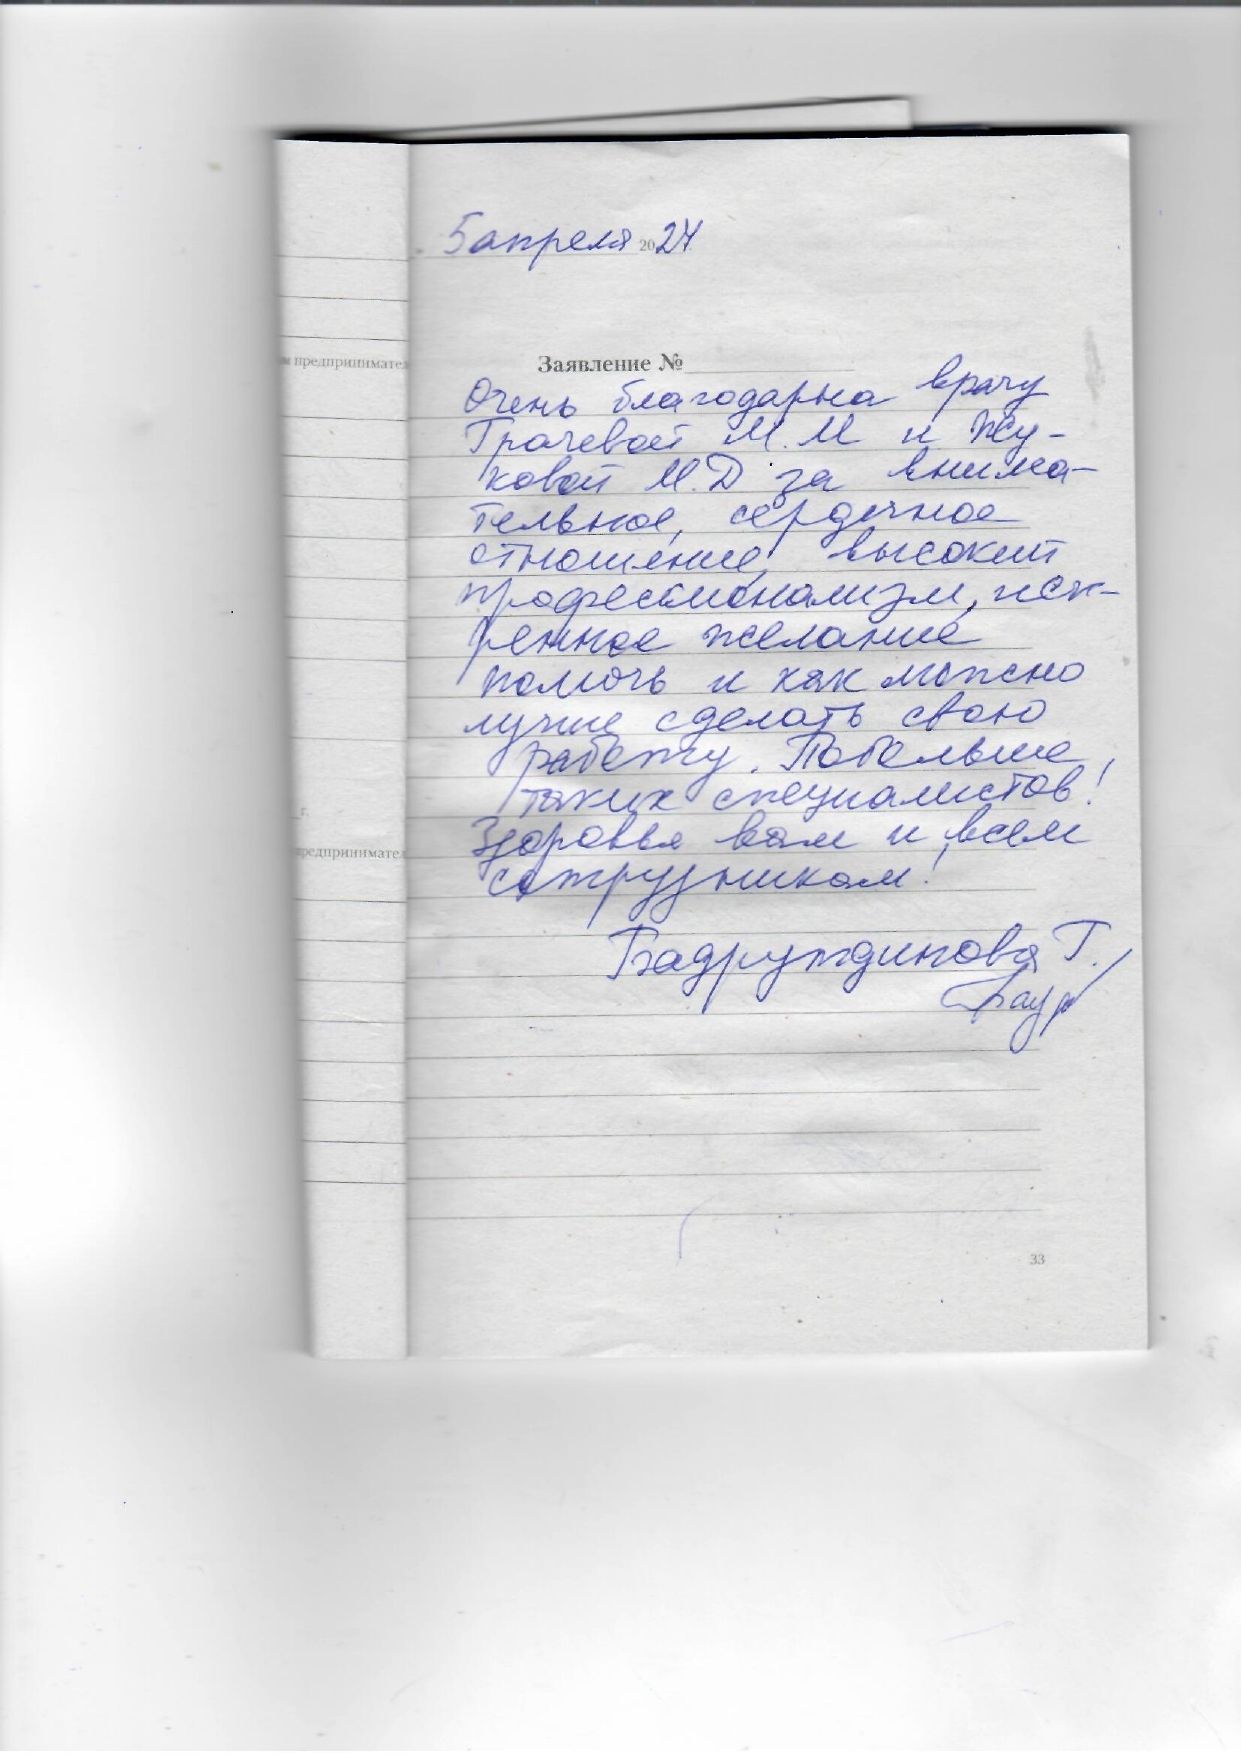 5 апреля 2024
м предпринимател
Заявление №
Очень благодарна врачу
Грачевой М.М и Жу-
ковой М.Д за внима-
тельное, сердечное
отношение, высокий
профессионализм, иск-
реннее желание
помочь и как можно
лучше сделать свою
работу. Побольше
таких специалистов!
г.
Здоровья вам и всем
предпринимател
сотрудникам!
Бадрутдинова Г.
33